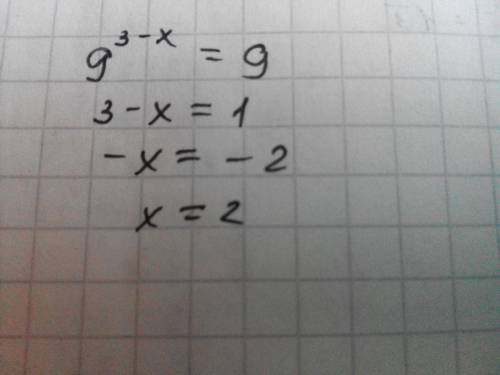 9^{3-x} = 9
3 - x = 1
- x = - 2
x = 2